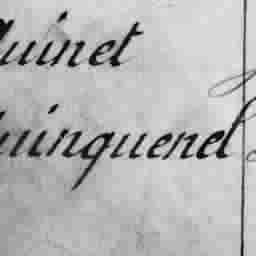 Quinet
Quinquenel